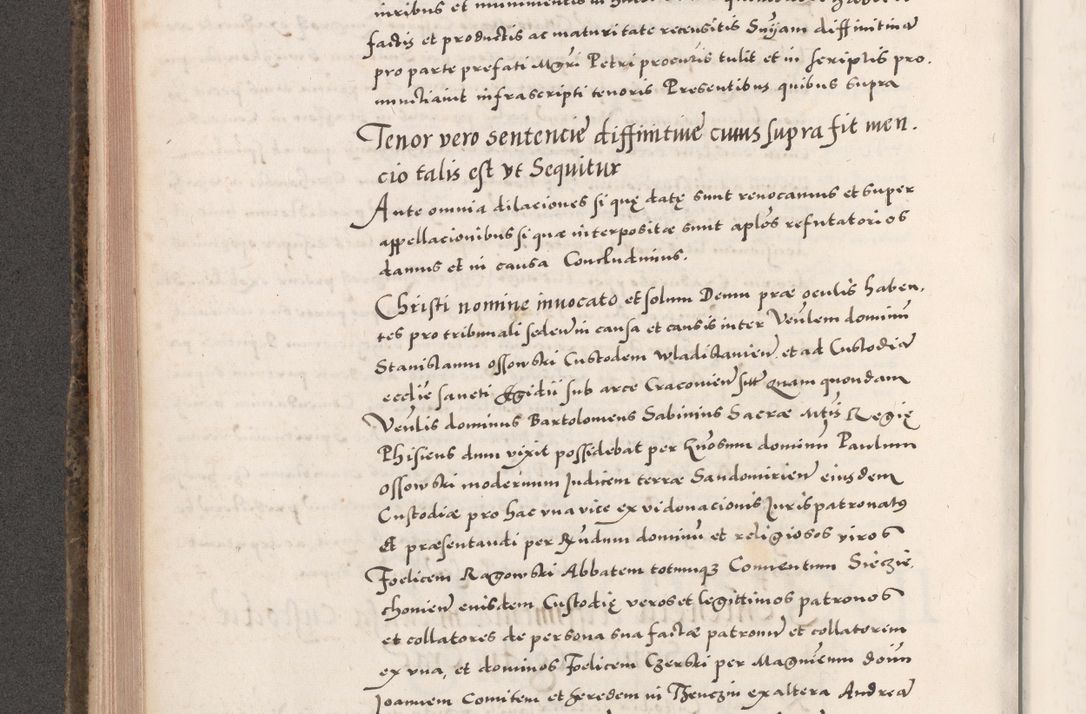 iuribus et munimentis in
factis et productis ac maturitate recensitis Sniam diffinitivã
pro parte prefati Mgri Petri procuris tulit et in scriptis pro.
nunctiavit infrascripti tenoris Presentibus quibus supra
Tenor vero sentencie diffinitive cuius supra fit men.
cio talis est vt Sequitur
Ante omnia dilaciones si quę datę sunt revocamus et super
appellacionibus si quæ interpositæ sunt aplos refutatorios
damus et in causa Concludimus.
Christi nomine invocato et solum Deum præ oculis haben,
tes pro tribunali seden in causa et causis inter Venlem dominũ
Stanislaum Ossowski Custodem Wladislavien et ad Custodiã
ecclie sancti Egidii sub arce Cracovien sitt Quam quondam
Venlis dominus Bartolomeus Sabinius Sacræ Mtis Regię
Phisicus dum vixit possidebat per Gnosum dominũ Paulum
Ossowski modernum Judicem terræ Sandomirien eiusdem
Custodiæ pro hac vna vice ex vi donacionis Juris patronatus
Et præsentandi per Rndum dominũ et religiosos viros
Foelicem Ragowski Abbatem totumque Conventum Sieczie,
chovien eiusdem Custodię veros et legittimos patronos
et collatores de persona sua factæ patronũ et collatorem
ex vna, et dominos Foelicem Czerski per Magnicum doim
Joannem Comitem et heredem in Thenczin ex altera Andreã